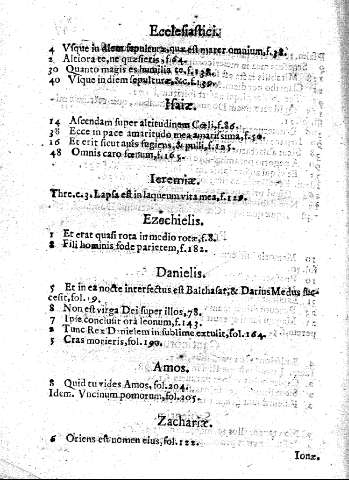 Ecclesiastici.
4 Vsque in diem sepulturæ, quæ est mater omnium, f.38.
2 Altiora te, ne quæsieris, f.64.
30 Quanto magis es humilia te, f.138.
40 Vsque in diem sepulturæ, &c. f.130.
Isaiæ.
14 Ascendam super altitudinem Cœli, f.86.
38 Ecce in pace amaritudo mea amarissima, f.50.
16 Et erit sicut auis fugiens, & pulli, f.125.
48 Omnis caro fœnum, f.165.
Ieremiæ.
Thre.c.3. Lapsa est in laqueum vita mea, f.119.
Ezechielis.
1 Et erat quasi rota in medio rotæ, f.8.
8 Fili hominis fode parietem, f.182.
Danielis.
5 Et in ea nocte interfectus est Balthasar, & Darius Medus suc-
cesit, fol.19.
8 Non est virga Dei super illos, 78.
7 Ipse conclusit ora leonum, f.143.
2 Tunc Rex Danielem in sublime extulit, fol.164.
5 Cras morieris, fol.190.
Amos.
8 Quid tu vides Amos, fol.204.
Idem. Vncinum pomorum, fol.205.
Zachariæ.
6 Oriens est nomen eius, fol.122.
Ionæ.